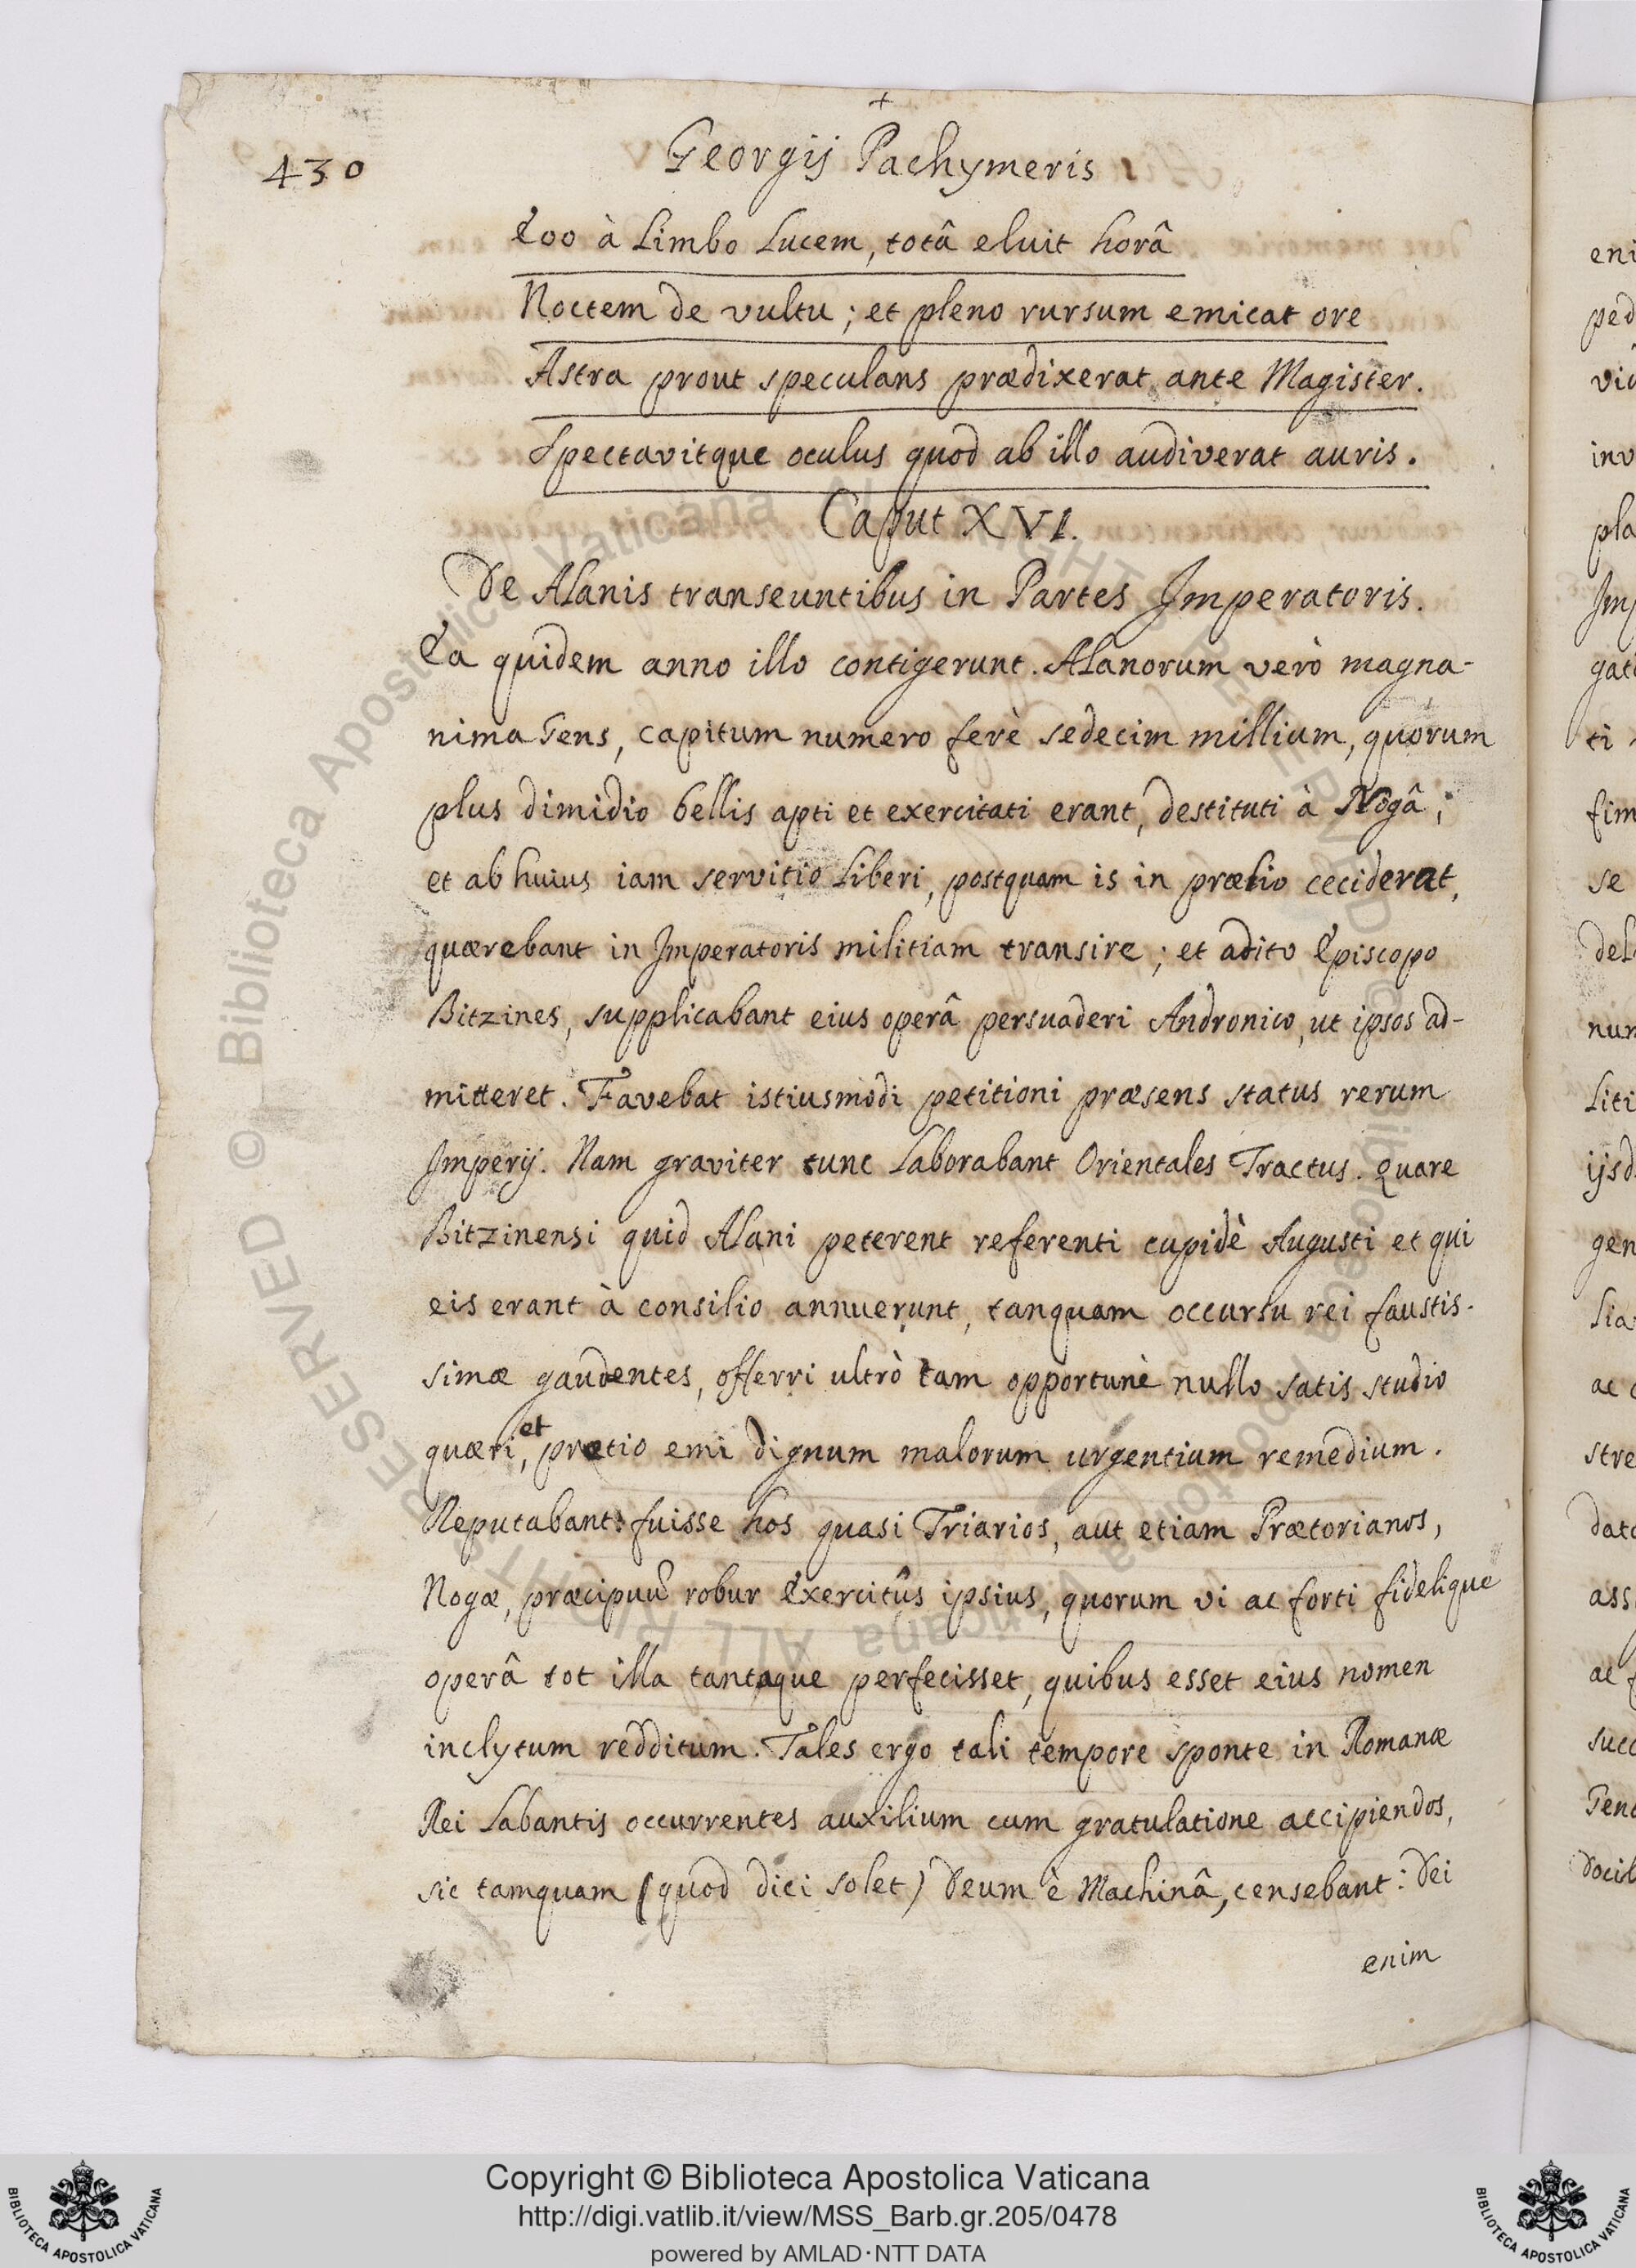 +
430
Georgij Pachymeris
Eoo à Limbo Lucem, totâ eluit horâ
Noctem de vultu; et pleno rursum emicat ore
Astra prout speculans prædixerat ante Magister.
Spectavitque oculus quod ab illo audiverat auris.
Caput XVI.
De Alanis transeuntibus in Partes Imperatoris.
Ea quidem anno illo contigerunt. Alanorum verò magna-
nima Gens, capitum numero ferè sedecim millium, quorum
plus dimidio bellis apti et exercitati erant, destituti à Nogâ,
et ab huius iam servitio Liberi, postquam is in prælio ceciderat,
quærebant in Imperatoris militiam transire; et adito Episcopo
Bitzines, supplicabant eius operâ persuaderi Andronico, ut ipsos ad-
mitteret. Favebat istiusmodi petitioni præsens status rerum
Imperij. Nam graviter tunc Laborabant Orientales Tractus. Quare
Bitzinensi quid Alani peterent referenti cupidè Augusti et qui
eis erant à consilio annuerunt, tanquam occursu rei faustis-
simæ gaudentes, offerri ultrò tam opportunè nullo satis studio
quæri, et prætio emi dignum malorum urgentium remedium.
Reputabant: fuisse hos quasi Triarios, aut etiam Prætorianos,
Nogæ, præcipuũ robur Exercitûs ipsius, quorum vi ac forti fidelique
operâ tot illa tantaque perfecisset, quibus esset eius nomen
inclytum redditum. Tales ergo tali tempore sponte in Romanæ
Rei Labantis occurrentes auxilium cum gratulatione accipiendos,
sic tamquam (quod dici solet) Deum è Machinâ, censebant: Dei
enim
eni
ped
inv
pla
Imp
gat
ti
fim
se
del
num
Liti
ijsd
gen
Lia
ac
stre
dat
ass
ac
succ
Gen
docil
© Biblioteca Apostolica Vaticana ALL RIGHTS RESERVED
Copyright © Biblioteca Apostolica Vaticana
http://digi.vatlib.it/view/MSS_Barb.gr.205/0478
powered by AMLAD·NTT DATA
BIBLIOTECA APOSTOLICA VATICANA
BIBLIOTECA APOSTOLICA VATICANA